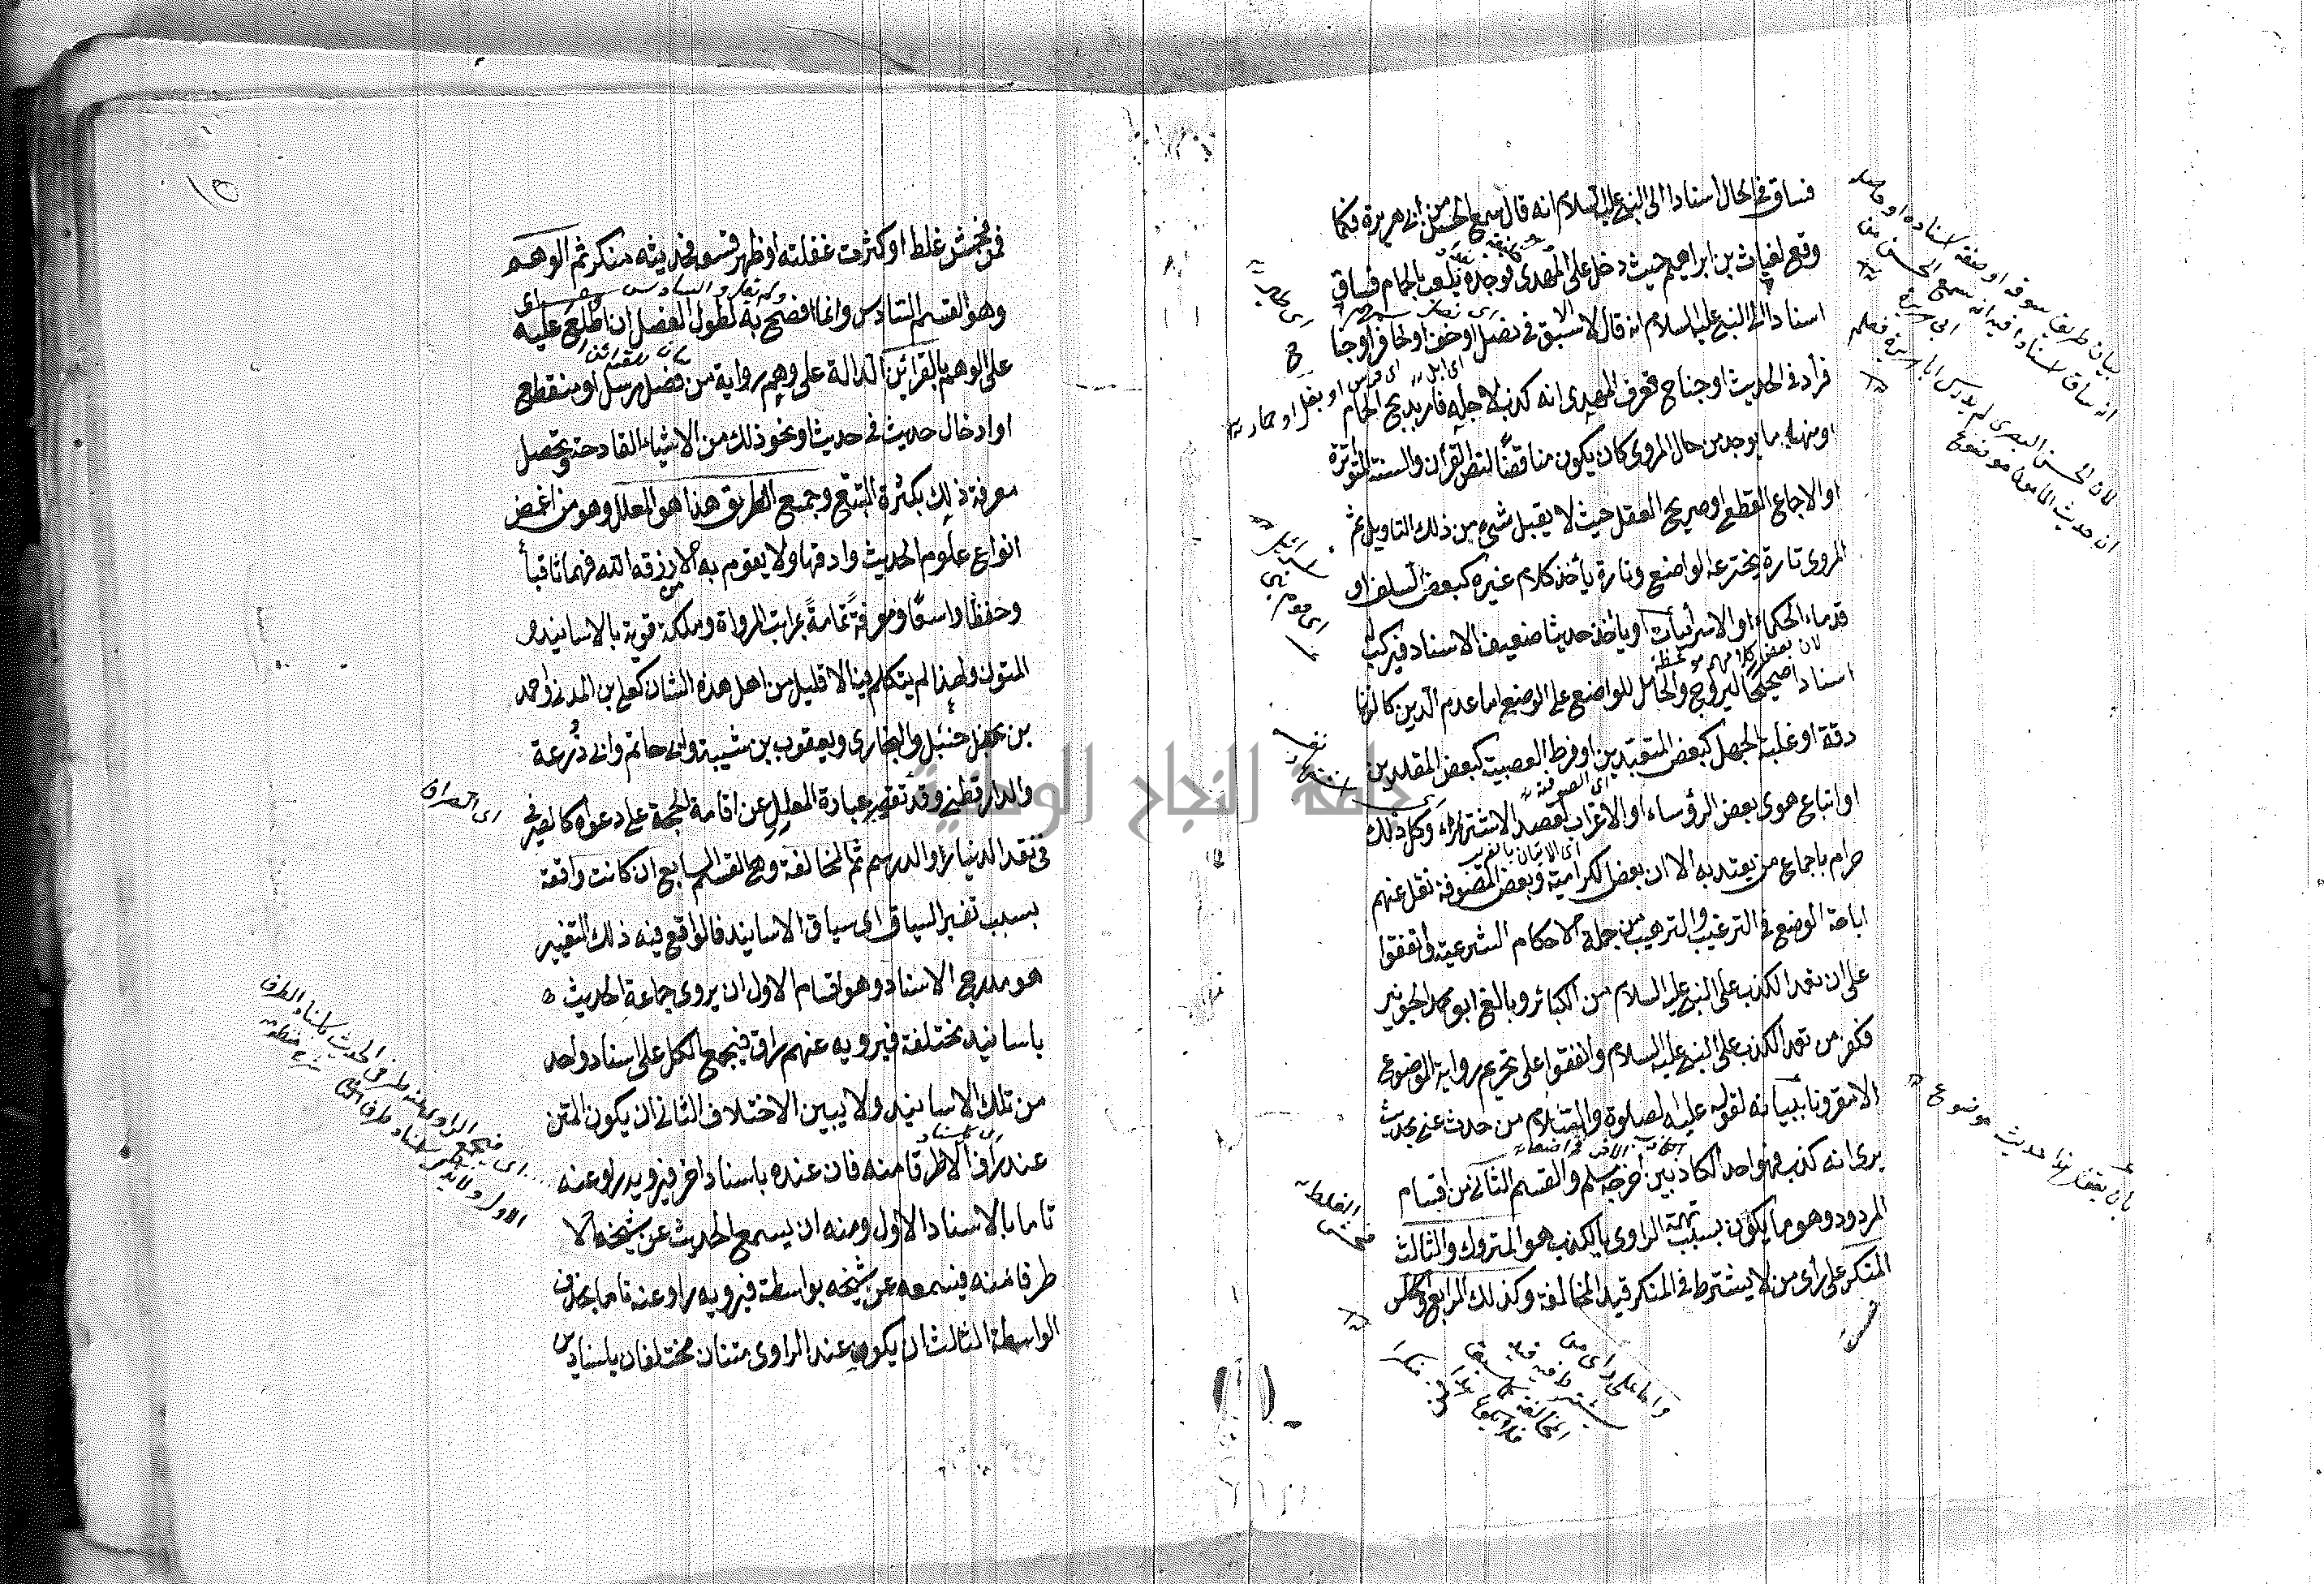 فساق في الحال اسنادا الى النبي عليه السلام انه قال سمع الحسن من أبي هريرة وكما
وقع لغياث بن ابراهيم حيث دخل على المهدي فوجده يلعب بالحمام فساق
اسنادا الى النبي عليه السلام انه قال لا سبق الا في نصل او خف او حافر او جنا
فزاد في الحديث او جناح فعرف المهدي انه كذب لاجله فأمر بذبح الحمام
او منها ما يوجد من حال المروي كان يكون مناقضا لنص القرأن والسنة المتواترة
او الاجماع القطعي او صريح العقل حيث لا يقبل شيء من ذلك التاويل ثم
المروي تارة يخترعه الواضع وتارة يأخذ كلام غيره كبعض السلف او
قدماء الحكماء او الاسرائيليات او يأخذ حديثا ضعيف الاسناد فيركب
اسنادا صحيحا ليروج والحامل للواضع على الوضع اما عدم الدين كالزنا
دقة او غلبة الجهل كبعض المتعبدين او فرط العصبية كبعض المقلدين
او اتباع هوى بعض الرؤساء او الاغراب لقصد الاشتهار وكل ذلك
حرام باجماع من يعتد به الا ان بعض الكرامية وبعض المتصوفة نقل عنهم
اباحة الوضع في الترغيب والترهيب من جملة الاحكام الشرعية واتفقوا
على ان تعمد الكذب على النبي عليه السلام من الكبائر وبالغ ابو محمد الجويني
فكفر من تعمد الكذب على النبي عليه السلام واتفقوا على تحريم رواية الموضوع
الا مقرونا ببيانه لقوله عليه الصلوة والسلام من حدث عني بحديث
يرى انه كذب فهو احد الكاذبين اخرجه مسلم والقسم الثاني من اقسام
المردود وهو ما يكون بسبب تهمة الراوي بالكذب هو المتروك والثالث
المنكر على رأى من لا يشترط في المنكر قيد المخالفة وكذلك الرابع والخامس
بيان طريق سوقه او صفة اسناده
انه ساق اسنادا فيه انه سمع الحسن من
ابي هريرة
لان الحسن البصري لم يدرس ابا هريرة فعلم
ان حديث المأمون موضوع
او بغل او حمار
لان بعض كلامهم موعظة
اى الصوفية
اى الاتيان بالغريب
بان يقول هذا حديث موضوع
فحش الغلط
١٥
فمن فحش غلطه او كثرت غفلته او ظهر فسقه فحديثه منكر ثم الوهم
وهو القسم السادس وانما افصح به لطول الفصل ان اطلع عليه اى
على الوهم بالقرائن الدالة على وهم رواية من وصل مرسل او منقطع
او ادخال حديث في حديث او نحو ذلك من الاشياء القادحة وتحصل
معرفة ذلك بكثرة التتبع وجمع الطريق هذا هو المعلل وهو من اغمض
انواع علوم الحديث وادقها ولا يقوم به الا من رزقه الله فهما ثاقبأ
وحفظا واسعًا ومعرفة تامة بمراتب الرواة وملكة قوية بالاسانيد و
المتون ولهذا لم يتكلم فيه الا قليل من اهل هذه الشان كعلي بن المدني واحمد
بن حنبل والبخاري ويعقوب بن شيبة وابي حاتم وابي زُرعة
والدارقطني وقد تقصر عبارة المعلل عن اقامة الحجة على دعواه كالصيرفي
في نقد الدينار او الدرهم ثم المخالفة وهي القسم السابع ان كانت واقعة
بسبب تغير السياق اى سياق الاسانيد فالواقع فيه ذلك التغيير
هو مدرج الاسناد وهو اقسام الاول ان يروي جماعة الحديث
باسانيد مختلفة فيرويه عنهم راو فيجمع الكل على اسناد واحد
من تلك الاسانيد ولا يبين الاختلاف الثاني ان يكون المتن
عند راو الا طرفا منه فان عنده باسناد اخر فيرويه راو عنه
تاما بالاسناد الاول ومنه ان يسمع الحديث عن شيخه الا
طرفا منه فيسمعه عن شيخه بواسطة فيرويه راو عنه تاما بحذف
الواسطة الثالث ان يكون عند الراوي متنان مختلفان باسنادين
اى الصراف
جامعة النجاح الوطنية